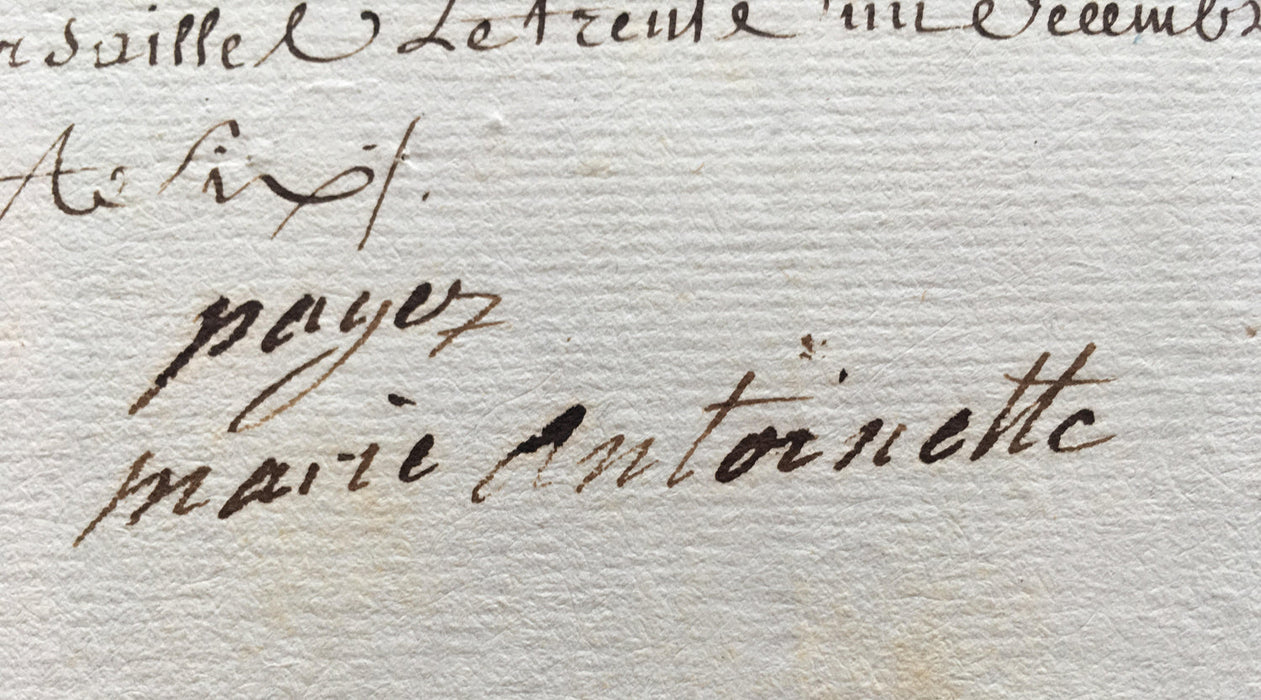 rsailles Le trente un decemb
te six /.
payez
marie antoinette